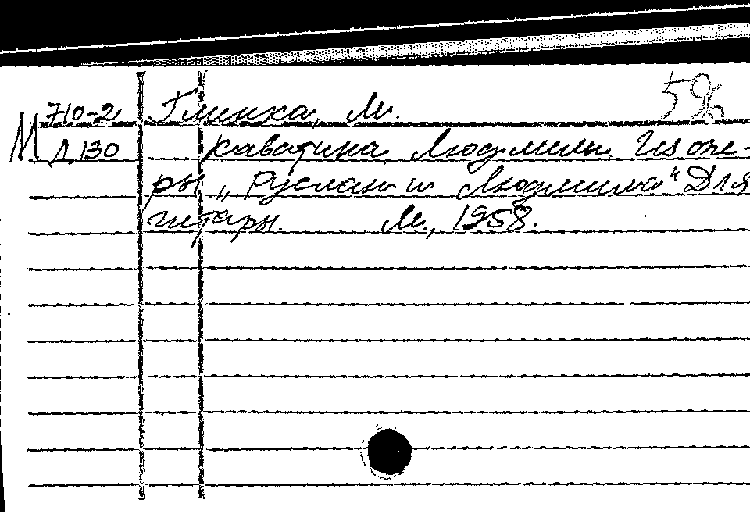 710-2 Глинка, М. 596
М Л 130 Каватина Людмилы. Из опе-
ры „Руслан и Людмила“ Для
гитары. М., 1958.